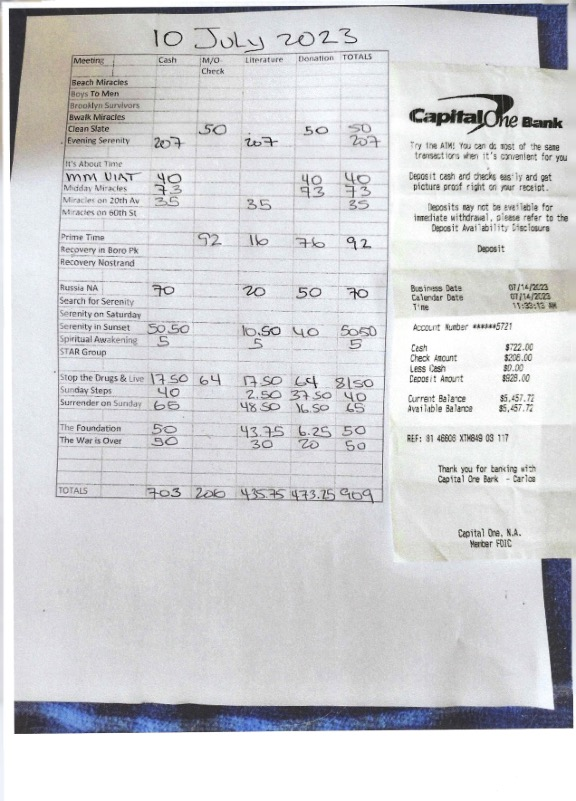 10 July 2023
Meeting Cash M/O Check Literature Donation TOTALS
Beach Miracles
Boys To Men
Brooklyn Survivors
Bwalk Miracles
Clean Slate 50 50 50
Evening Serenity 207 207 207
It's About Time
MM VIAT 40 40 40
Midday Miracles 73 93 73
Miracles on 20th Av 35 35 35
Miracles on 60th St
Prime Time 92 16 76 92
Recovery in Boro Pk
Recovery Nostrand
Russia NA 70 20 50 70
Search for Serenity
Serenity on Saturday
Serenity in Sunset 50.50 10.50 40 5050
Spiritual Awakening 5 5 5
STAR Group
Stop the Drugs & Live 17.50 64 17.50 64 8150
Sunday Steps 40 2.50 37.50 40
Surrender on Sunday 65 48.50 16.50 65
The Foundation 50 43.75 6.25 50
The War is Over 50 30 20 50
TOTALS 703 206 435.75 473.25 909
Capital One Bank
Try the ATM! You can do most of the same
transactions when it's convenient for you
Deposit cash and checks easily and get
picture proof right on your receipt.
Deposits may not be available for
immediate withdrawal, please refer to the
Deposit Availability Disclosure
Deposit
Business Date 07/14/2023
Calendar Date 07/14/2023
Time AM
Account Number ******5721
Cash $722.00
Check Amount $206.00
Less Cash $0.00
Deposit Amount $928.00
Current Balance $5,457.72
Available Balance $5,457.72
REF: 81 46606 XTM849 03 117
Thank you for banking with
Capital One Bank - Carlos
Capital One, N.A.
Member FDIC